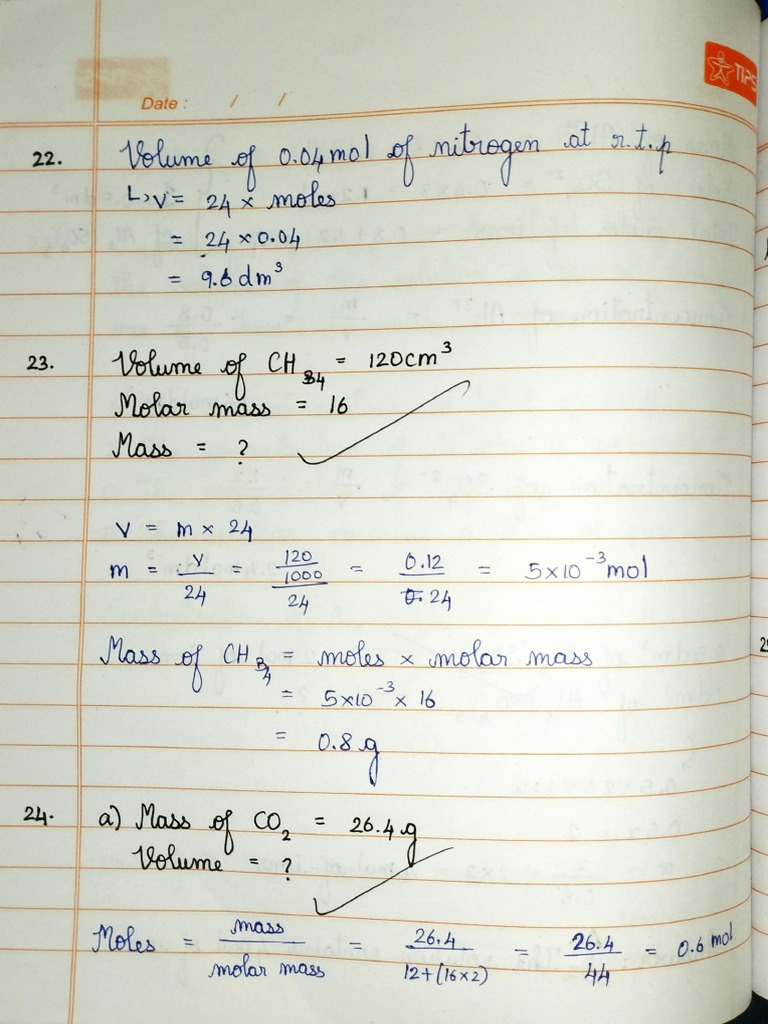 TIPS
Date : / /
22. Volume of 0.04 mol of nitrogen at r.t.p
↳ V = 24 × moles
= 24 × 0.04
= 9.6 dm³
23. Volume of CH₄ = 120cm³
Molar mass = 16
Mass = ?
V = m × 24
m = V/24 = (120/1000)/24 = 0.12/24 = 5×10⁻³ mol
Mass of CH₄ = moles × molar mass
= 5×10⁻³ × 16
= 0.8 g
24. a) Mass of CO₂ = 26.4 g
Volume = ?
Moles = mass/molar mass = 26.4/12+(16×2) = 26.4/44 = 0.6 mol